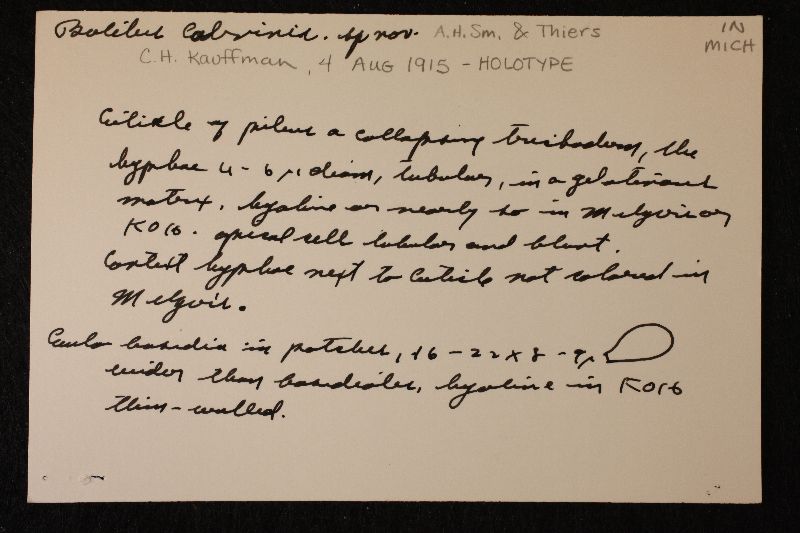 Boletus calvinii. sp nov. A.H.Sm. & Thiers
IN MICH
C.H. Kauffman, 4 AUG 1915 - HOLOTYPE
Cuticle of pileus a collapsing trichoderm, the
hyphae 4-6 µ diam, tubular, in a gelatinous
matrix, hyaline or nearly so in Melzers or
KOH. apical cell tubular and blunt.
Context hyphae next to cuticle not colored in
Melzers.
Caulo basidia in patches, 16-22 x 8-9µ
wider than basidioles, hyaline in KOH
thin-walled.